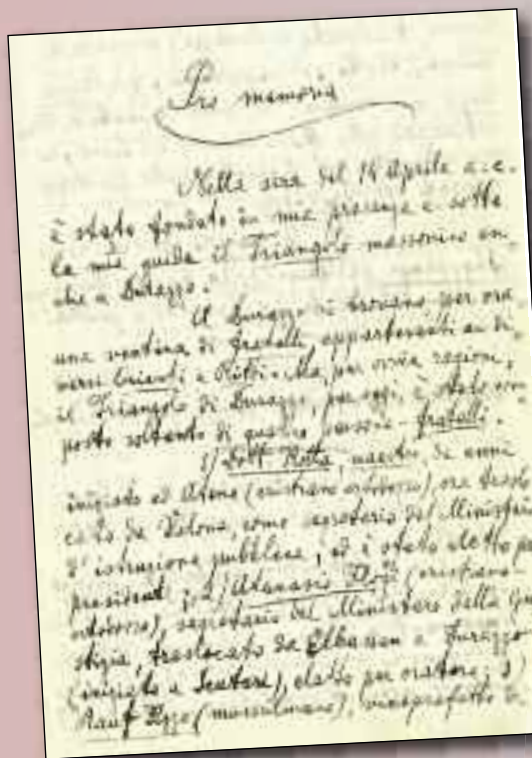 Pro memoria
Nella sera del 14 Aprile a.c.
è stato fondato in mia presenza e sotto
la mia guida il Triangolo massonico an-
che a Durazzo.
A Durazzo si trovano per ora
una ventina di fratelli appartenenti a di-
versi Orienti e Ritti. Ma, per ovvie ragioni,
il Triangolo di Durazzo, per oggi, è stato com-
posto soltanto di quattro persone - fratelli.
1) Dott Rotta, maestro, da anni
iniziato ad Atene (cristiano ortodosso), ora traslo-
cato da Valona, come segretario del Ministero
d'istruzione pubblica, ed è stato eletto per
president; 2) Atanasio (cristiano -
ortodosso), segretario del Ministero della Giu-
stizia, traslocato da Elbassan a Durazzo
(iniziato a Scutari), eletto per oratore; 3)
Rauf (mussulmano), viceprefetto